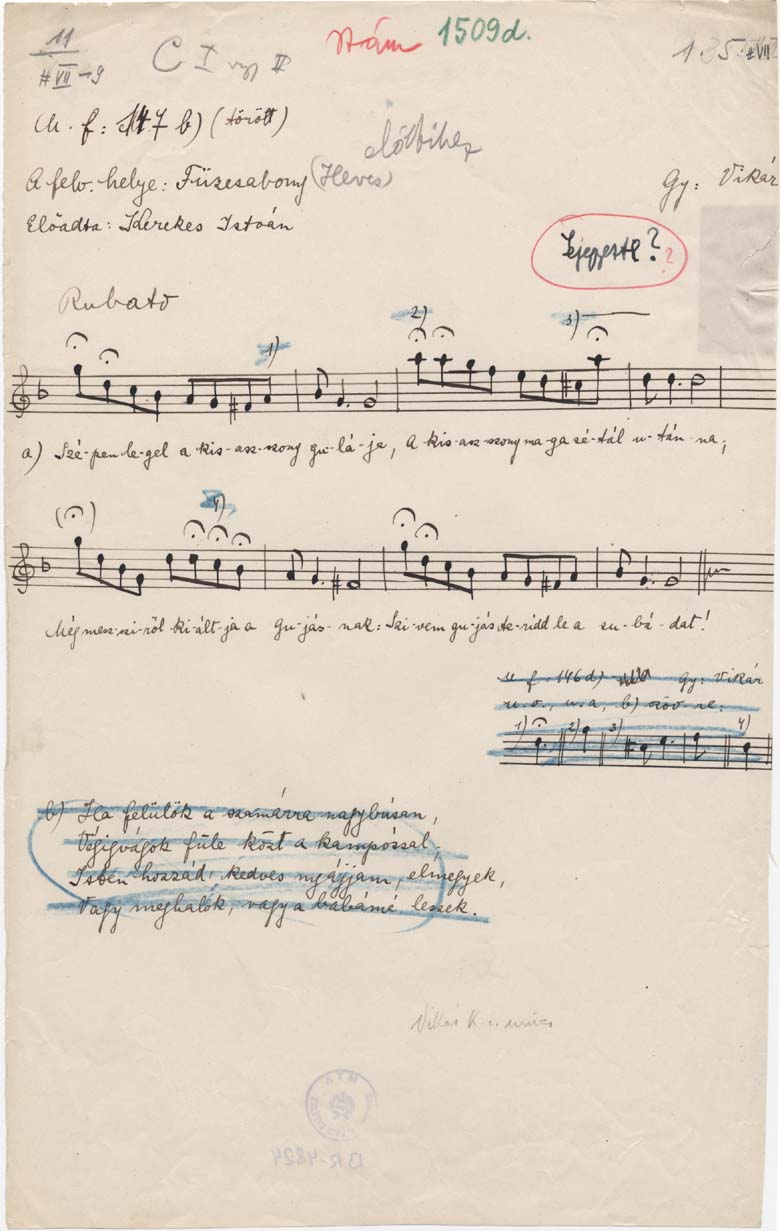 11
# VII -9
C I vagy II
Stám 1509d.
1
M. f: 1147 b) (törött)
előbbihez
A felv. helye: Füzesabony (Heves)
Gy: Vikár
Előadta: Kerekes István
Lejegyezte??
Rubato
1) 2) 3)
a) Szé-pen le-gel a kis-asz-szony gu-lá-ja, A kis-asz-szony ma-ga sé-tál u-tán-na;
4)
Még mesz-szi-ről ki-ált-ja a gu-jás-nak: Szi-vem gu-jás te-rídd le a su-bá-dat!
f. 146d) Gy: Vikár
u. o., u. a, b) szöv-re:
1) 2) 3) 4)
b) Ha felülök a szamárra nagybúsan,
Végigvágok füle közt a kampóssal.
Isten hozzád, kedves ngájjam, elmegyek,
Vagy meghalók, vagy a babámé leszek.
Vikár
BR-4824